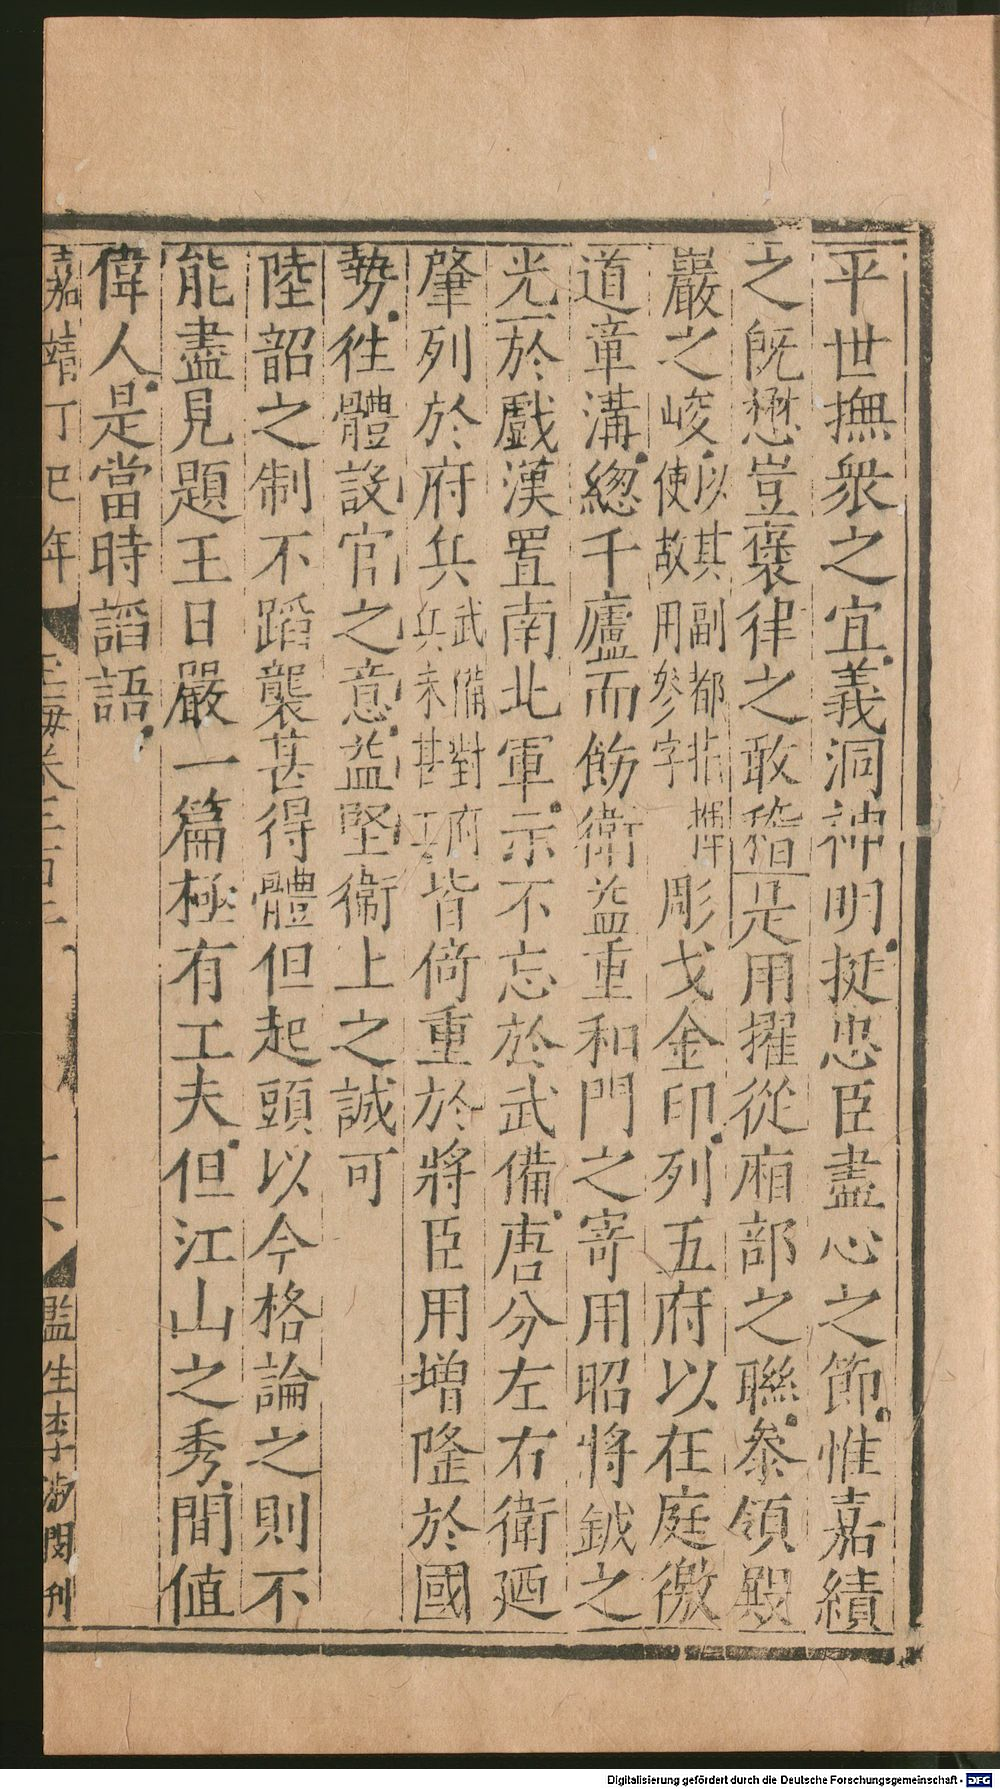 平世撫衆之宜義洞神明挺忠臣盡心之節惟嘉績
之旣懋豈襃律之敢稽是用擢從廂部之聯叅領殿
巖之峻以其副都指揮使故用叅字彫戈金印列五府以在庭徼
道章溝緫千廬而飭衛益重和門之寄用昭將鉞之
光於戲漢置南北軍示不忘於武備唐分左右衛廼
肇列於府兵武備對府兵未甚工皆倚重於將臣用增隆於國
勢徃體設官之意益堅衞上之誠可
陸韶之制不蹈襲甚得體但起頭以今格論之則不
能盡見題王日嚴一篇極有工夫但江山之秀間値
偉人是當時謟語
嘉靖丁巳年
玉海卷二百二
監生李 閔刊
Digitalisierung gefördert durch die Deutsche Forschungsgemeinschaft - DFG